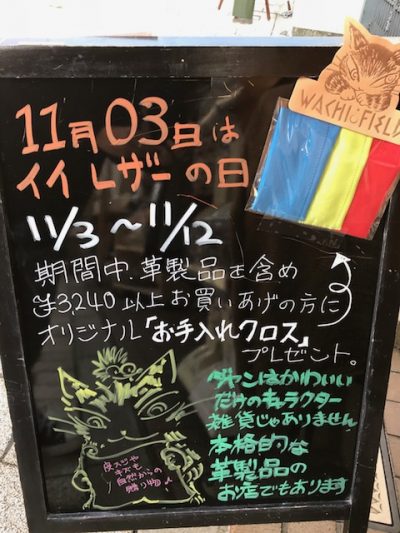 WACHIFIELD
11月03日は
イイレザーの日
11/3〜11/12
期間中、革製品を含め
¥3,240以上お買いあげの方に
オリジナル「お手入れクロス」
プレゼント。
ダヤンはかわいい
だけのキャラクター
雑貨じゃありません
本格的な
革製品の
お店でもあります
皮スジや
キズも
自然からの
贈り物♪